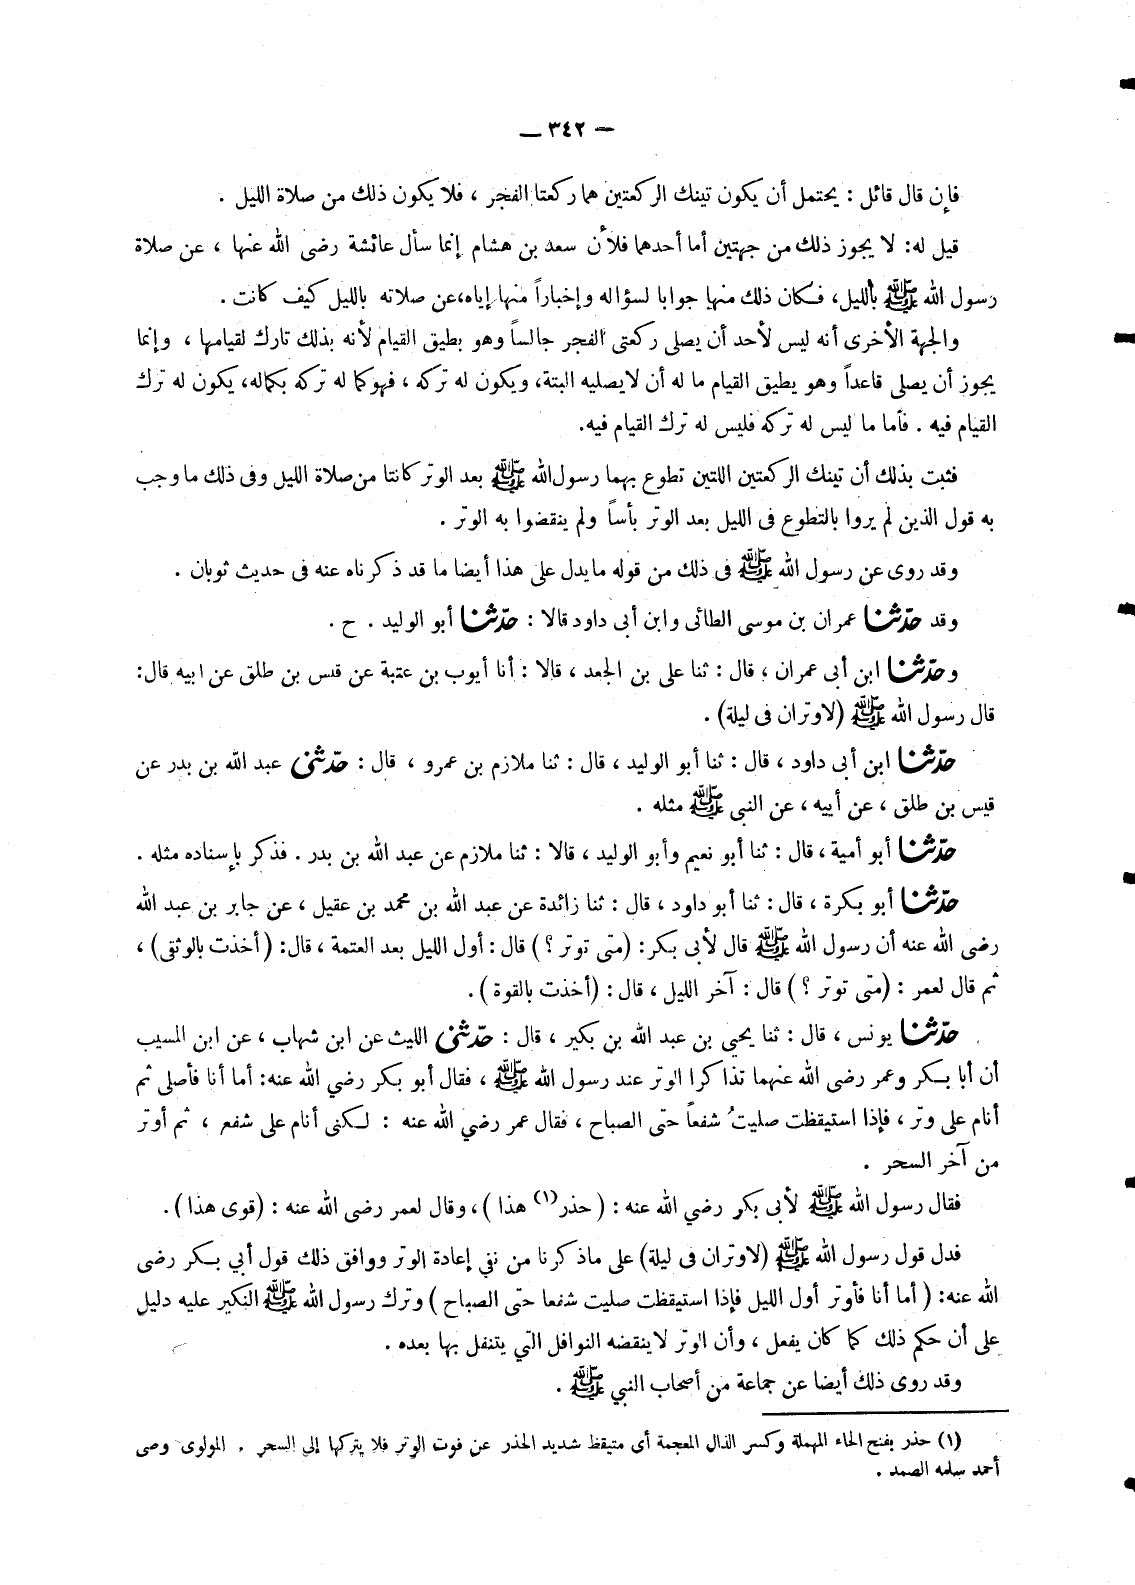 — ٣٤٢ —
فإن قال قائل : يحتمل أن يكون تينك الركعتين هما ركعتا الفجر ، فلا يكون ذلك من صلاة الليل .
قيل له: لا يجوز ذلك من جهتين أما أحدهما فلأن سعد بن هشام إنما سأل عائشة رضى الله عنها ، عن صلاة
رسول الله ﷺ بالليل، فكان ذلك منها جوابا لسؤاله وإخباراً منها إياه،عن صلاته بالليل كيف كانت .
والجهة الأخرى أنه ليس لأحد أن يصلى ركعتى الفجر جالساً وهو بطيق القيام لأنه بذلك تارك لقيامها ، وإنما
يجوز أن يصلى قاعداً وهو يطيق القيام ما له أن لايصليه البتة، ويكون له تركه ، فهوكما له تركه بكماله، يكون له ترك
القيام فيه . فأما ما ليس له تركه فليس له ترك القيام فيه.
فثبت بذلك أن تينك الركعتين اللتين تطوع بهما رسول الله ﷺ بعد الوتر كانتا من صلاة الليل وفى ذلك ما وجب
به قول الذين لم يروا بالتطوع فى الليل بعد الوتر بأساً ولم ينقضوا به الوتر .
وقد روى عن رسول الله ﷺ فى ذلك من قوله مايدل على هذا أيضا ما قد ذكرناه عنه فى حديث ثوبان .
وقد حدّثنا عمران بن موسى الطائى وابن أبى داود قالا : حدّثنا أبو الوليد . ح .
وحدّثنا ابن أبى عمران ، قال : ثنا على بن الجعد ، قالا : أنا أيوب بن عتبة عن قيس بن طلق عن ابيه قال:
قال رسول الله ﷺ (لاوتران فى ليلة) .
حدّثنا ابن أبى داود ، قال : ثنا أبو الوليد ، قال : ثنا ملازم بن عمرو ، قال : حدّثنى عبد الله بن بدر عن
قيس بن طلق ، عن أبيه ، عن النبى ﷺ مثله .
حدّثنا أبو أمية ، قال : ثنا أبو نعيم وأبو الوليد ، قالا : ثنا ملازم عن عبد الله بن بدر . فذكر بإسناده مثله .
حدّثنا أبو بكرة ، قال : ثنا أبو داود ، قال : ثنا زائدة عن عبد الله بن محمد بن عقيل ، عن جابر بن عبد الله
رضى الله عنه أن رسول الله ﷺ قال لأبى بكر: (متى توتر ؟) قال : أول الليل بعد العتمة ، قال: (أخذت بالوثقى) ،
ثم قال لعمر : (متى توتر ؟) قال : آخر الليل ، قال : (أخذت بالقوة) .
حدّثنا يونس ، قال : ثنا يحيي بن عبد الله بن بكير ، قال : حدّثنى الليث عن ابن شهاب ، عن ابن المسيب
أن أبا بكر وعمر رضى الله عنهما تذاكرا الوتر عند رسول الله ﷺ ، فقال أبو بكر رضي الله عنه: أما أنا فأصلى ثم
أنام على وتر ، فإذا استيقظت صليتُ شفعاً حتى الصباح ، فقال عمر رضي الله عنه : لكنى أنام على شفع ، ثم أوتر
من آخر السحر .
فقال رسول الله ﷺ لأبى بكر رضي الله عنه : (حذر(١) هذا) ، وقال لعمر رضى الله عنه : (قوى هذا) .
فدل قول رسول الله ﷺ (لاوتران فى ليلة) على ماذكرنا من نفي إعادة الوتر ووافق ذلك قول أبي بكر رضى
الله عنه: ( أما أنا فأوتر أول الليل فإذا استيقظت صليت شفعا حتى الصباح ) وترك رسول الله ﷺ النكير عليه دليل
على أن حكم ذلك كما كان يفعل ، وأن الوتر لاينقضه النوافل التي يتنفل بها بعده .
وقد روى ذلك أيضا عن جماعة من أصحاب النبي ﷺ .
(١) حذر بفتح الحاء المهملة وكسر الذال المعجمة أى متيقظ شديد الحذر عن فوت الوتر فلا يتركها إلى السحر . المولوى وصى
أحمد سلمه الصمد .